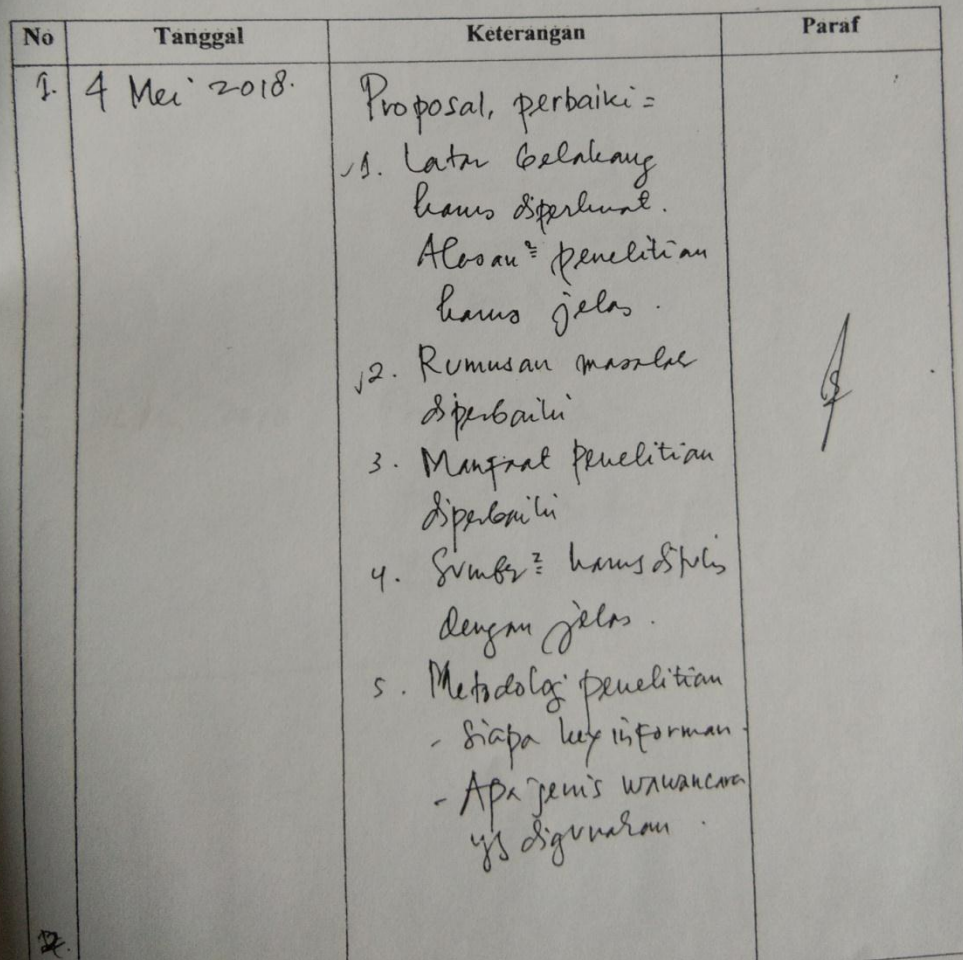 No Tanggal Keterangan Paraf
1. 4 Mei 2018. Proposal, perbaiki =
1. Latar belakang
harus diperkuat.
Alasan² penelitian
harus jelas.
2. Rumusan masalah
diperbaiki
3. Manfaat penelitian
diperbaiki
4. Sumber² harus ditulis
dengan jelas.
5. Metodologi penelitian
- Siapa key informan.
- Apa jenis wawancara
yg digunakan.
2.